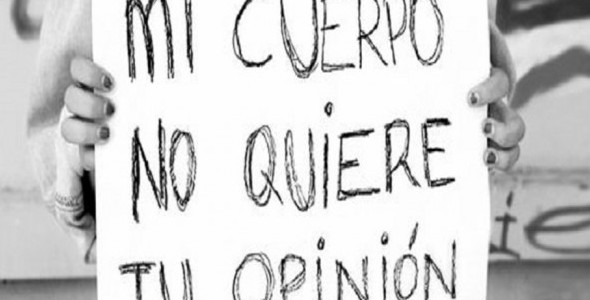 MI CUERPO
NO QUIERE
TU OPINIÓN